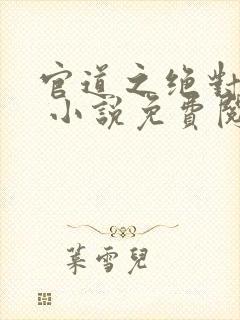 官道之绝對
小說免費閱
葉雪兒